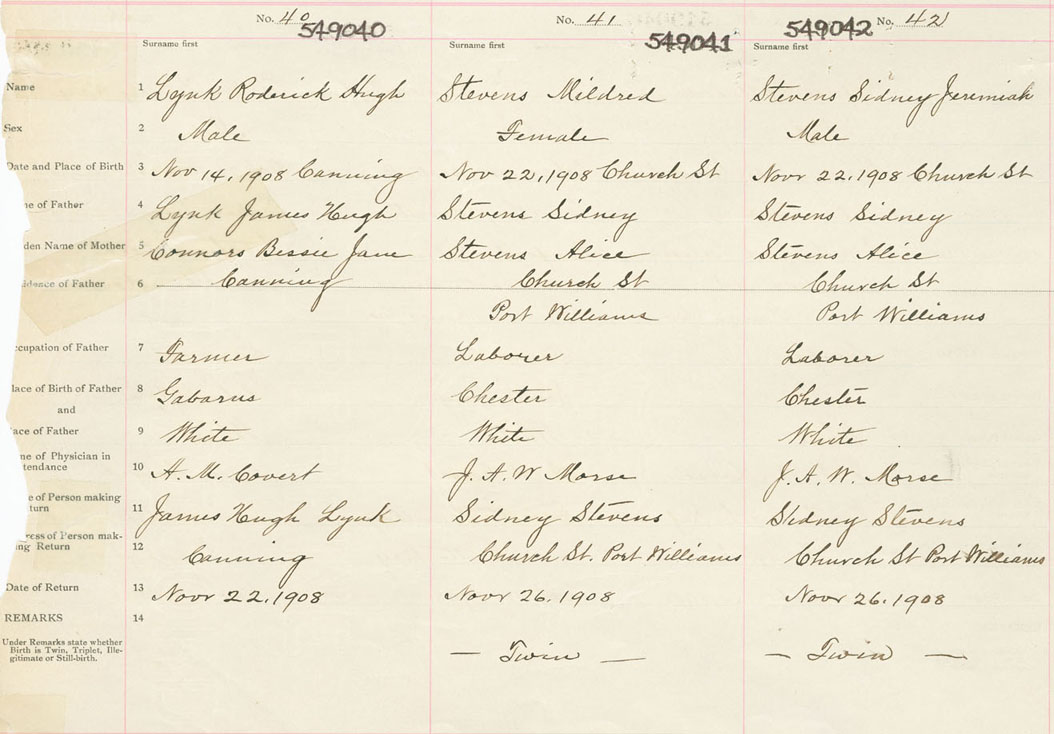 No. 40 No. 41 No. 42
549040 549041 549042
Surname first Surname first Surname first
Name 1 Lynk Roderick Hugh Stevens Mildred Stevens Sidney Jeremiah
Sex 2 Male Female Male
Date and Place of Birth 3 Nov 14, 1908 Canning Nov 22, 1908 Church St Novr 22, 1908 Church St
ne of Father 4 Lynk James Hugh Stevens Sidney Stevens Sidney
den Name of Mother 5 Connors Bessie Jane Stevens Alice Stevens Alice
idence of Father 6 Canning Church St Church St
Port Williams Port Williams
ccupation of Father 7 Farmer Laborer Laborer
lace of Birth of Father 8 Gabarus Chester Chester
and
ace of Father 9 White White White
ne of Physician in
tendance 10 A. M. Covert J. A. W Morse J. A. W. Morse
e of Person making
turn 11 James Hugh Lynk Sidney Stevens Sidney Stevens
ress of Person mak-
ing Return 12 Canning Church St. Port Williams Church St Port Williams
Date of Return 13 Novr 22, 1908 Novr 26, 1908 Novr 26, 1908
REMARKS 14
Under Remarks state whether
Birth is Twin, Triplet, Ille-
gitimate or Still-birth. — Twin — — Twin —